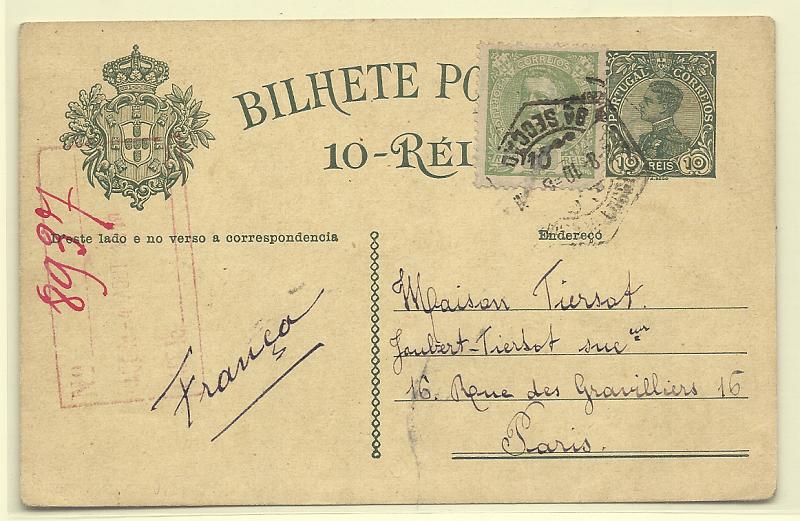 BILHETE PO
10-RÉI
CORREIOS
PORTUGAL CORREIOS
10 REIS 10
8ª SECÇÃO
D'este lado e no verso a correspondencia
Endereço
França
Maison Tiersot.
Joubert-Tiersot succ^eur
16. Rue des Gravilliers 16
Paris.